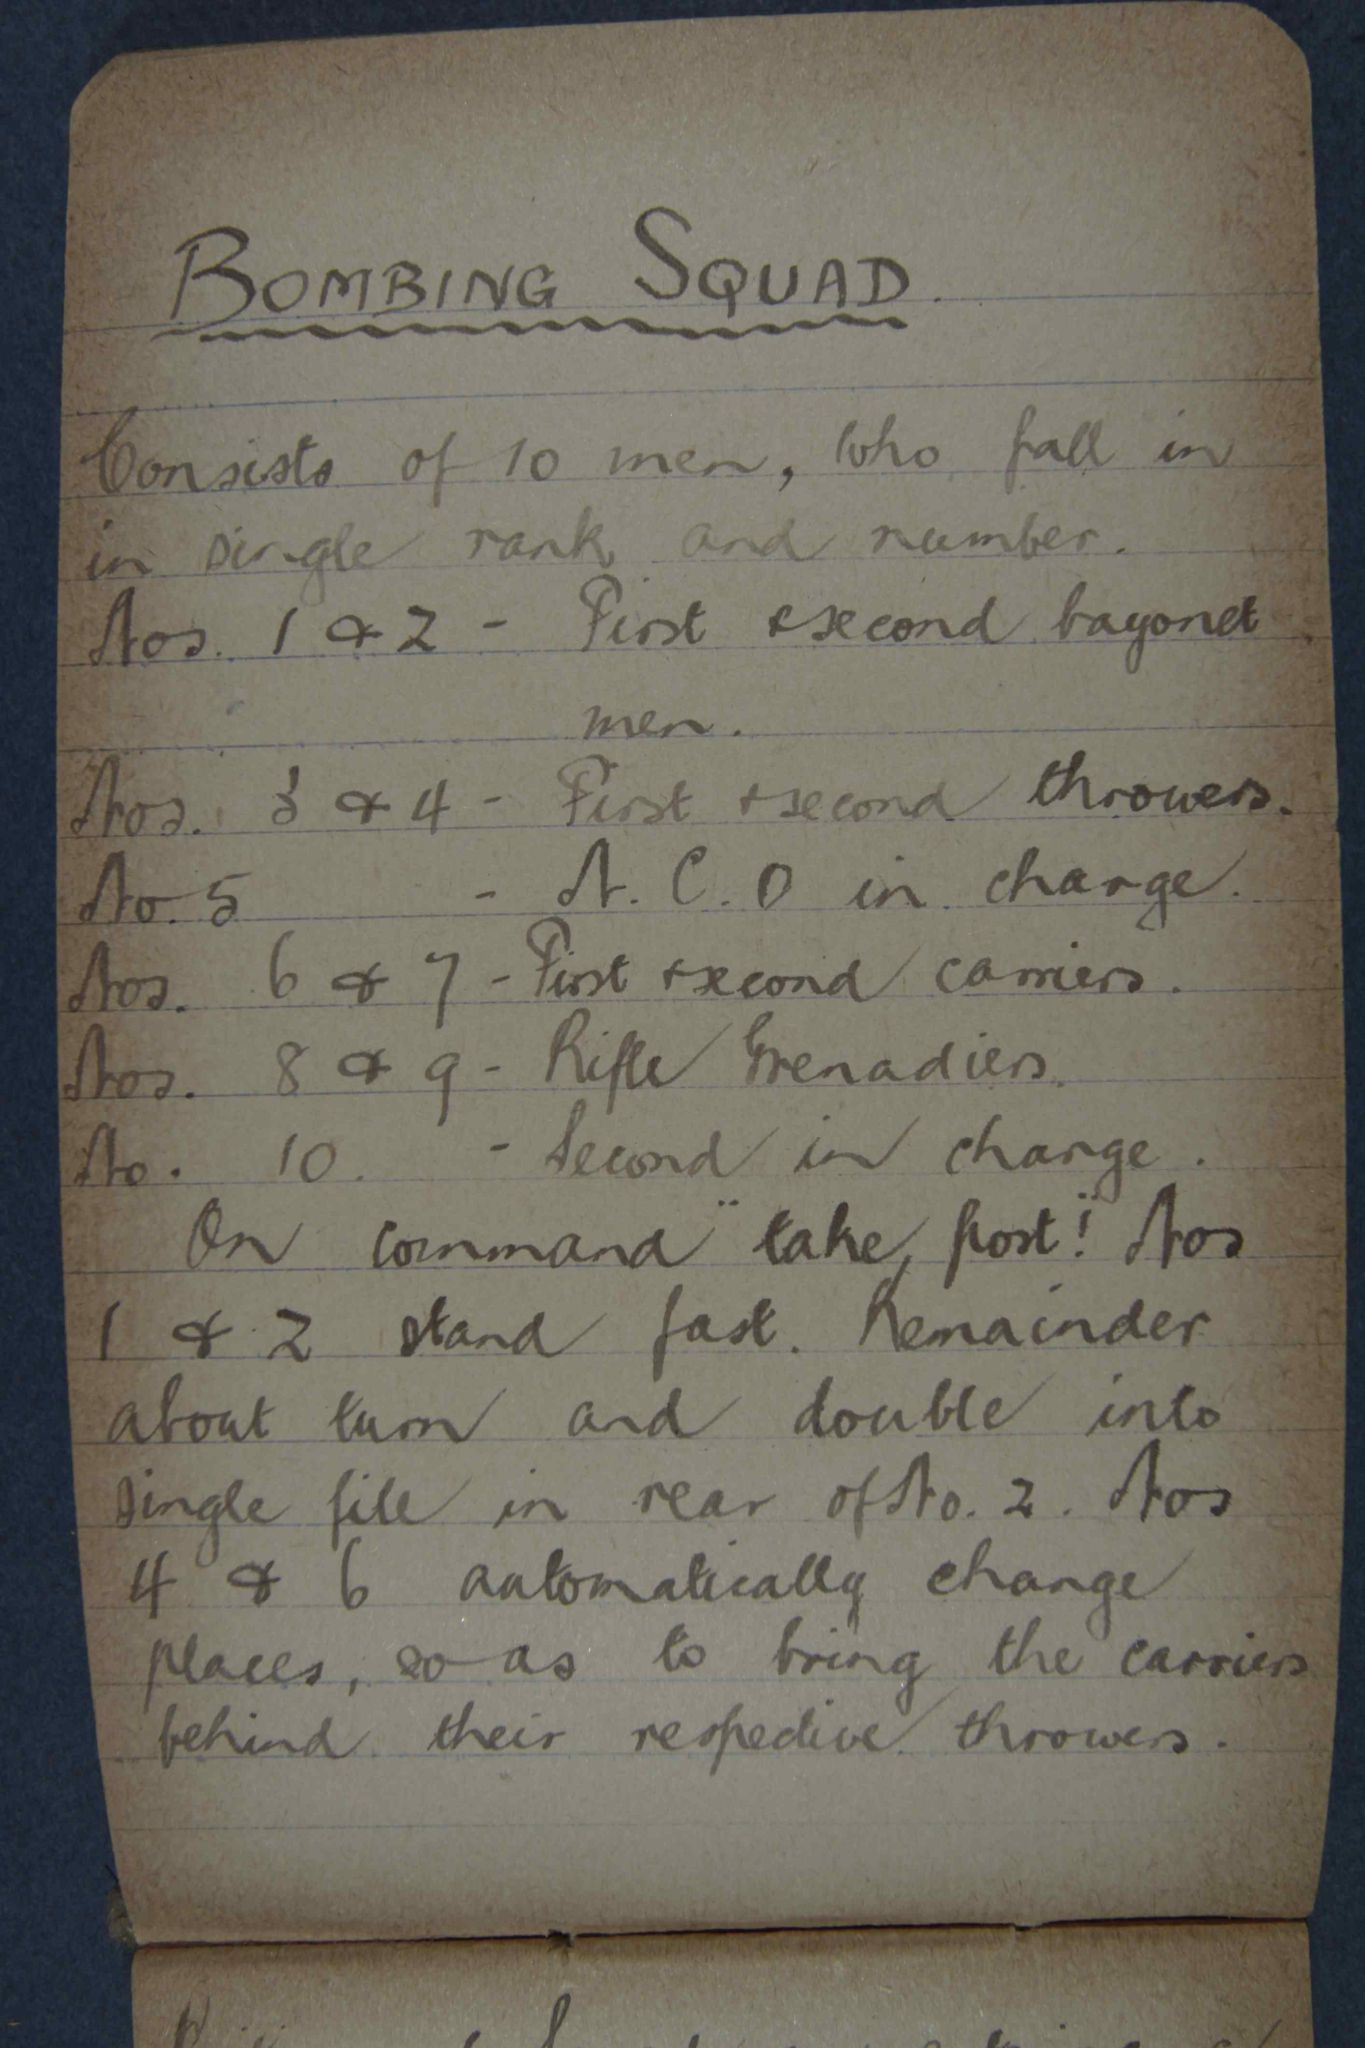 BOMBING SQUAD.
Consists of 10 men, who fall in
in single rank and number.
Nos. 1 & 2 - First & second bayonet
men.
Nos. 3 & 4 - First & second throwers.
No. 5 - N. C. O in charge.
Nos. 6 & 7 - First & second carriers.
Nos. 8 & 9 - Rifle Grenadiers.
No. 10. - Second in charge.
On command "take post!" Nos
1 & 2 stand fast. Remainder
about turn and double into
single file in rear of No. 2. Nos
4 & 6 automatically change
places, so as to bring the carriers
behind their respective throwers.